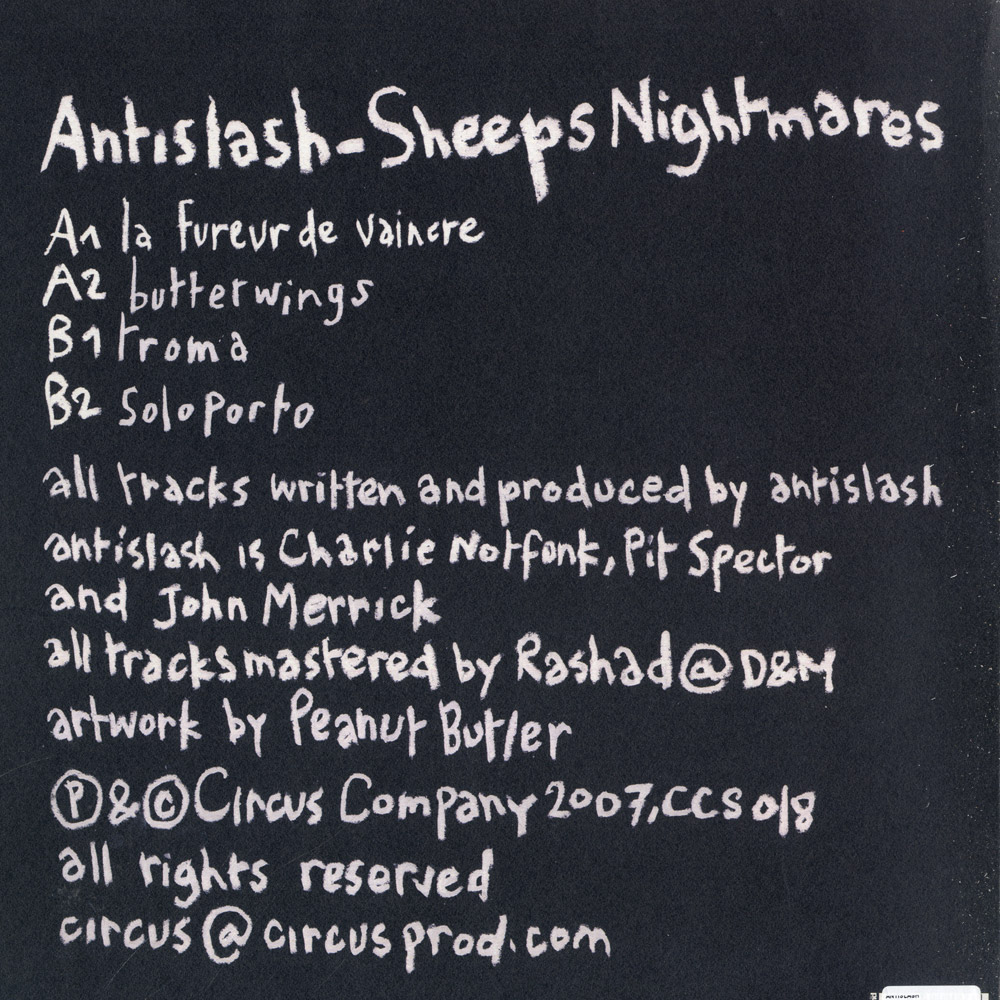 Antislash-Sheeps Nightmares
A1 la fureur de vaincre
A2 butterwings
B1 troma
B2 Soloporto
all tracks written and produced by antislash
antislash is Charlie Notfonk, Pit Spector
and John Merrick
all tracks mastered by Rashad@D&M
artwork by Peanut Butler
Ⓟ&©Circus Company 2007,CCS 018
all rights reserved
circus@circusprod.com
ANTISLASH